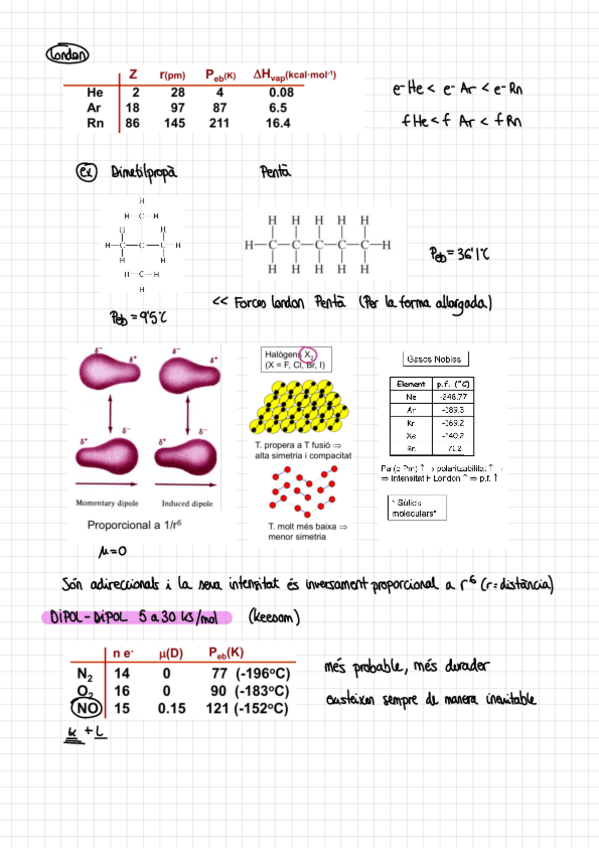 London
Z r(pm) Peb(K) ΔHvap(kcal·mol-1)
He 2 28 4 0.08
Ar 18 97 87 6.5
Rn 86 145 211 16.4
e- He < e- Ar < e- Rn
f He < f Ar < f Rn
ex Dimetilpropà Pentà
H
H C H
H H
H—C—C—C—H
H H
H—C—H
H
H H H H H
H—C—C—C—C—C—H
H H H H H
Peb = 36'1ºC
Peb = 9'5ºC
<< Forces london Pentà (Per la forma allargada)
δ- δ+ δ- δ+
δ+ δ- δ+ δ-
Momentary dipole Induced dipole
Proporcional a 1/r6
μ=0
Halògens X2
(X = F, Cl, Br, I)
T. propera a T fusió ⇒
alta simetria i compacitat
T. molt més baixa ⇒
menor simetria
Gasos Nobles
Element p.f. (°C)
Ne -248,77
Ar -189,3
Kr -169,2
Xe -140,2
Rn 71,2
⇒ Intensitat F London ↑ ⇒ p.f. ↑
"Sòlids
moleculars"
Són adireccionals i la seva intensitat és inversament proporcional a r6 (r=distància)
DIPOL-DIPOL 5 a 30 kJ/mol (keesom)
n e- μ(D) Peb(K)
N2 14 0 77 (-196ºC)
O2 16 0 90 (-183ºC)
NO 15 0.15 121 (-152ºC)
K + L
més probable, més durader
existeixen sempre de manera inevitable